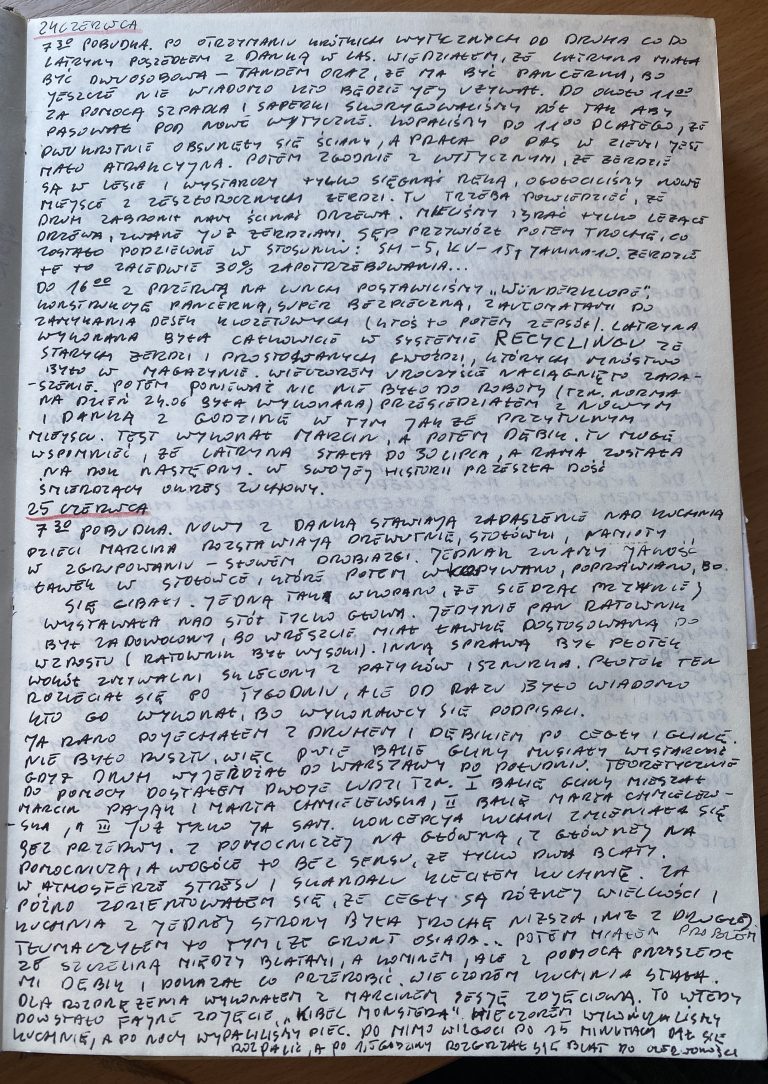 24 CZERWCA
7 30 POBUDKA. PO OTRZYMANIU KRÓTKICH WYTYCZNYCH OD DRUHA CO DO
LATRYNY POSZEDŁEM Z DANKĄ W LAS. WIEDZIAŁEM, ŻE LATRYNA MIAŁA
BYĆ DWUOSOBOWA – TANDEM ORAZ, ŻE MA BYĆ PANCERNA, BO
JESZCZE NIE WIADOMO KTO BĘDZIE JEJ UŻYWAŁ. DO OKOŁO 11 00
ZA POMOCĄ SZPADLA I SAPERKI SKORYGOWALIŚMY DÓŁ TAK ABY
PASOWAŁ POD NOWE WYTYCZNE. KOPALIŚMY DO 11 00 DLATEGO, ŻE
DWUKROTNIE OBSUNĘŁY SIĘ ŚCIANY, A PRACA PO PAS W ZIEMI JEST
MAŁO ATRAKCYJNA. POTEM ZGODNIE Z WYTYCZNYMI, ŻE ŻERDZIE
SĄ W LESIE I WYSTARCZY TYLKO SIĘGNĄĆ RĘKĄ, OGOŁOCILIŚMY NOWE
MIEJSCE Z ZESZŁOROCZNYCH ŻERDZI. TU TRZEBA POWIEDZIEĆ, ŻE
DRUH ZABRONIŁ NAM ŚCINAĆ DRZEWA. MIELIŚMY BRAĆ TYLKO LEŻĄCE
DRZEWA, ZWANE JUŻ ŻERDZIAMI. SĘP PRZYWIÓZŁ POTEM TROCHĘ, CO
ZOSTAŁO PODZIELONE W STOSUNKU: SH-5, KU-15, JANINA-10. ŻERDZIE
TE TO ZALEDWIE 30% ZAPOTRZEBOWANIA...
DO 16 00 Z PRZERWĄ NA LUNCH POSTAWILIŚMY „WUNDERKLOPE",
KONSTRUKCJĘ PANCERNĄ, SUPER BEZPIECZNĄ, Z AUTOMATAMI DO
ZAMYKANIA DESEK KLOZETOWYCH (KTOŚ TO POTEM ZEPSÓŁ). LATRYNA
WYKONANA BYŁA CAŁKOWICIE W SYSTEMIE RECYCLINGU ZE
STARYCH ŻERDZI I PROSTOWANYCH GWOŹDZI, KTÓRYCH MNÓSTWO
BYŁO W MAGAZYNIE. WIECZOREM UROCZYŚCIE NACIĄGNIĘTO ZADA-
-SZENIE. POTEM PONIEWAŻ NIC NIE BYŁO DO ROBOTY (TZN. NORMA
NA DZIEŃ 24.06 BYŁA WYKONANA) PRZESIEDZIAŁEM Z NOWYM
I DANKĄ 2 GODZINĘ W TYM JAKŻE PRZYTULNYM
MIEJSCU. TEST WYKONAŁ MARCIN, A POTEM DĘBIK. TU MOGĘ
WSPOMNIEĆ, ŻE LATRYNA STAŁA DO 30 LIPCA, A RAMA ZOSTAŁA
NA ROK NASTĘPNY. W SWOJEJ HISTORII PRZESZŁA DOŚĆ
ŚMIERDZĄCY OKRES ZUCHOWY.
25 CZERWCA
7 30 POBUDKA. NOWY Z DANKĄ STAWIAJĄ ZADASZENIE NAD KUCHNIĄ
DZIECI MARCINA ROZSTAWIAJĄ DREWUTNIE, STOŁÓWKI, NAMIOTY
W ZGRUPOWANIU – SŁOWEM DROBIAZGI. JEDNAK ZNAMY JAKOŚĆ
ŁAWEK W STOŁÓWCE, KTÓRE POTEM WKOPYWANO, POPRAWIANO, BO
SIĘ GIBAŁY. JEDNĄ TAK WKOPANO, ŻE SIEDZĄC PRZY NIEJ
WYSTAWAŁA NAD STÓŁ TYLKO GŁOWA. JEDYNIE PAN RATOWNIK
BYŁ ZADOWOLONY, BO WRESZCIE MIAŁ ŁAWKĘ DOSTOSOWANĄ DO
WZROSTU (RATOWNIK BYŁ WYSOKI). INNĄ SPRAWĄ BYŁ PŁOTEK
WOKÓŁ ZMYWALNI SKLECONY Z PATYKÓW I SZNURKA. PŁOTEK TEN
ROZLECIAŁ SIĘ PO TYGODNIU, ALE OD RAZU BYŁO WIADOMO
KTO GO WYKONAŁ, BO WYKONAWCY SIĘ PODPISALI.
JA RANO POJECHAŁEM Z DRUHEM I DĘBIKIEM PO CEGŁY I GLINĘ.
NIE BYŁO RUSZTU, WIĘC DWIE BALIE GLINY MUSIAŁY WYSTARCZYĆ
GDYŻ DRUH WYJEŻDŻAŁ DO WARSZAWY PO POŁUDNIU. TEORETYCZNIE
DO POMOCY DOSTAŁEM DWOJE LUDZI TZN. I BALIĘ GLINY MIESZAŁ
MARCIN PAJĄK I MARTA CHMIELEWSKA, II BALIĘ MARTA CHMIELEW-
-SKA, A III JUŻ TYLKO JA SAM. KONCEPCJA KUCHNI ZMIENIAŁA SIĘ
BEZ PRZERWY. Z POMOCNICZEJ NA GŁÓWNĄ, Z GŁÓWNEJ NA
POMOCNICZĄ, A WOGÓLE TO BEZ SENSU, ŻE TYLKO DWA BLATY.
W ATMOSFERZE STRESU I SKANDALU KLECIŁEM KUCHNIĘ. ZA
PÓŹNO ZORIENTOWAŁEM SIĘ, ŻE CEGŁY SĄ RÓŻNEJ WIELKOŚCI I
KUCHNIA Z JEDNEJ STRONY BYŁA TROCHĘ NIŻSZA, NIŻ Z DRUGIEJ.
TŁUMACZYŁEM TO TYM, ŻE GRUNT OSIADA... POTEM MIAŁEM PROBLEM
ZE SZCZELINĄ MIĘDZY BLATAMI, A KOMINEM, ALE Z POMOCĄ PRZYSZEDŁ
MI DĘBIK I POKAZAŁ CO PRZEROBIĆ. WIECZOREM KUCHNIA STAŁA.
DLA ROZPRĘŻENIA WYKONAŁEM Z MARCINEM SESJĘ ZDJĘCIOWĄ. TO WTEDY
POWSTAŁO FAJNE ZDJĘCIE „KIBEL MONSTERA". WIECZOREM
KUCHNIĘ, A PO NOCY WYPALILIŚMY PIEC. PO MIMO WILGOCI PO 15 MINUTACH DAŁ SIĘ
ROZPALIĆ, A PO 1,5 GODZINY ROZGRZAŁ SIĘ BLAT DO CZERWONOŚCI